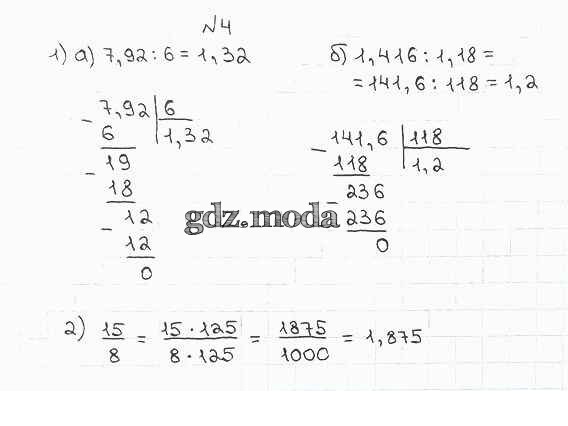 №4
1) а) 7,92 : 6 = 1,32
б) 1,416 : 1,18 =
= 141,6 : 118 = 1,2
- 7,92 | 6
6 1,32
- 19
18
- 12
12
0
- 141,6 | 118
118 1,2
- 236
236
0
gdz.moda
2) 15/8 = 15 · 125/8 · 125 = 1875/1000 = 1,875